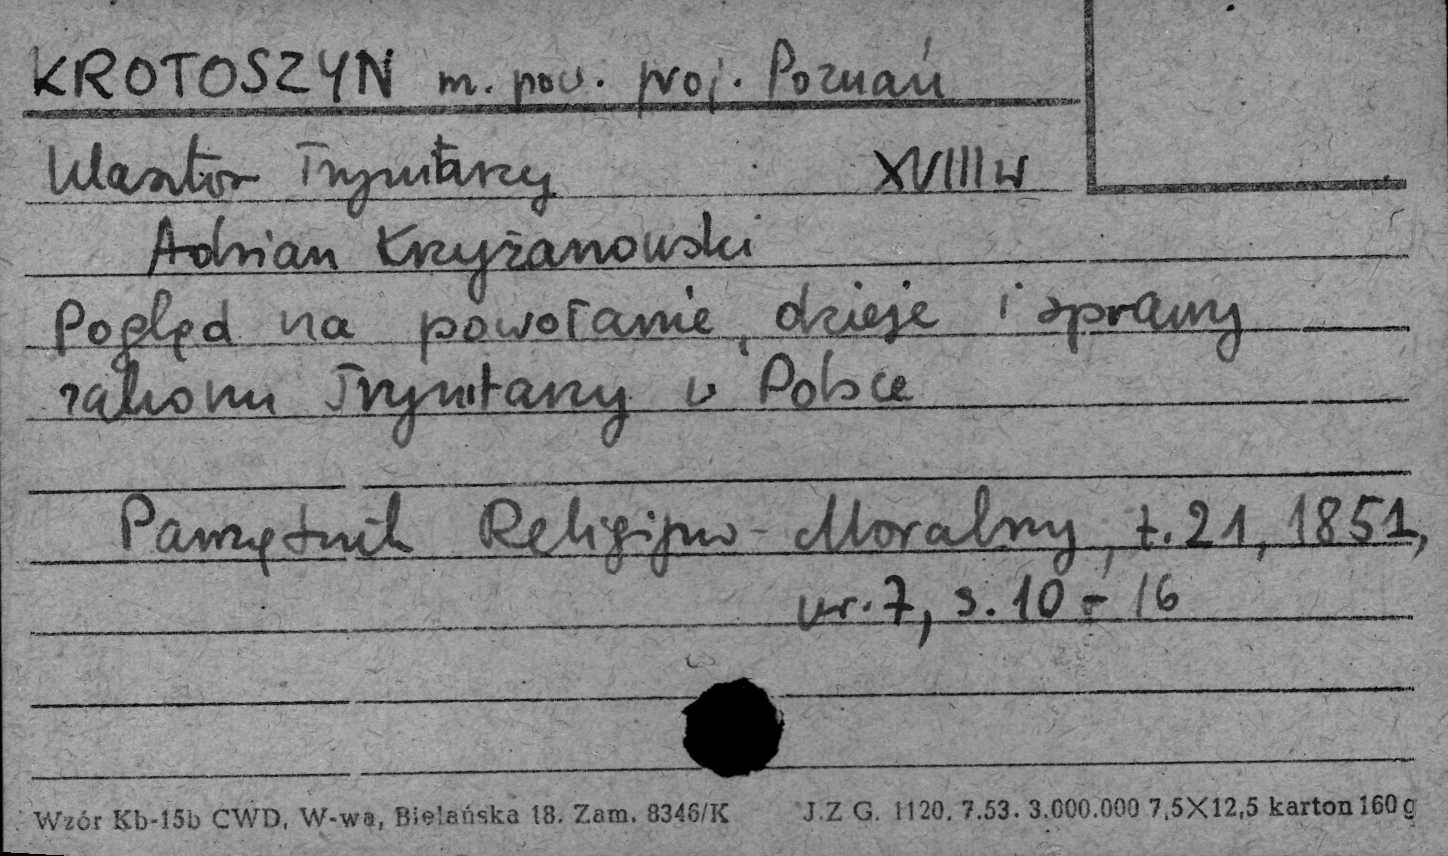 KROTOSZYN m. pow. woj. Poznań
Klasztor Trynitarzy XVIII w
Adrian Krzyżanowski
Pogląd na powołanie, dzieje i sprawy
zakonu Trynitarzy w Polsce
Pamiętnik Religijno-Moralny, t. 21, 1851,
nr. 7, s. 10-16
Wzór Kb-15b CWD, W-wa, Bielańska 18. Zam. 8346/K J.Z G. 1120. 7.53. 3.000.000 7,5X12,5 karton 160 g